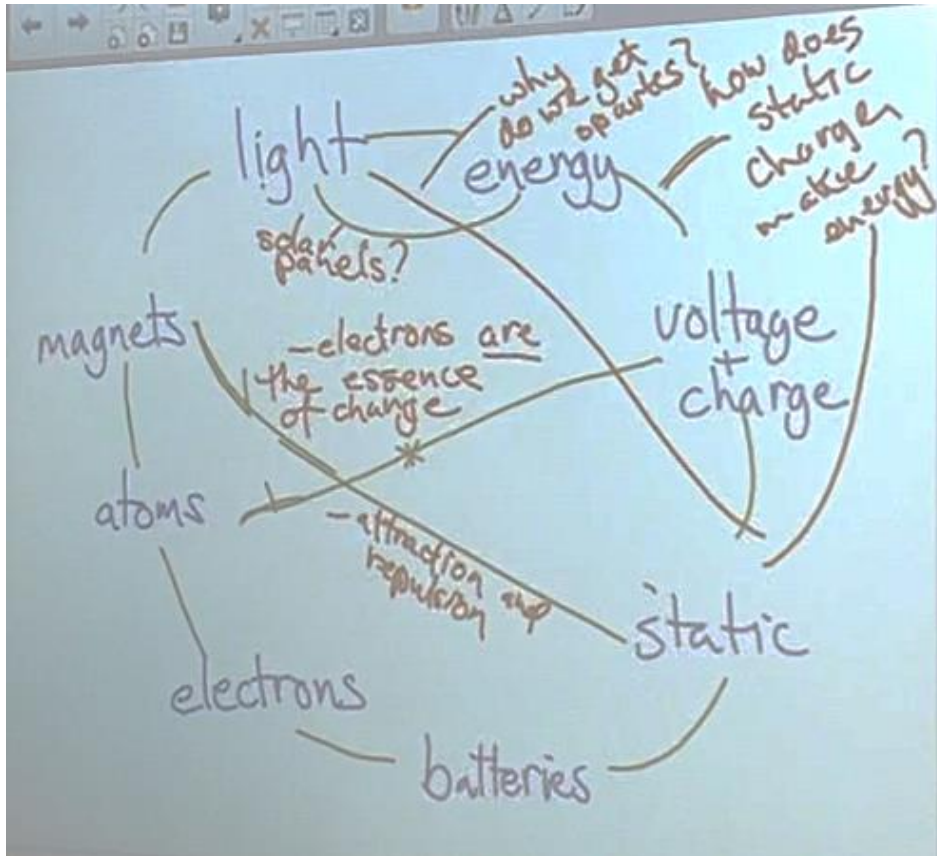 why
do we get
sparks?
how does
static
charge
make
energy?
light
energy
solar
panels?
magnets
-electrons are
the essence
of change
voltage
+
charge
atoms
-attraction and
repulsion
static
electrons
batteries